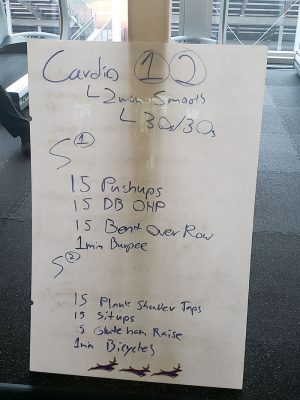 Cardio ① ②
└ 2min Smooth
└ 30s/30s
S ①
15 Pushups
15 DB OHP
15 Bent Over Row
1min Burpee
S ②
15 Plank Shoulder Taps
15 Situps
15 Glute ham Raise
1min Bicycles